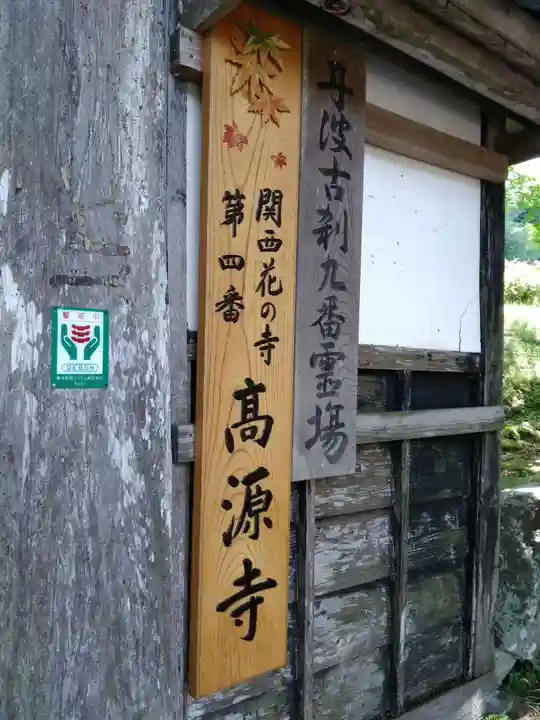 丹波古刹九番霊場
関西花の寺
第四番
高源寺
警戒中